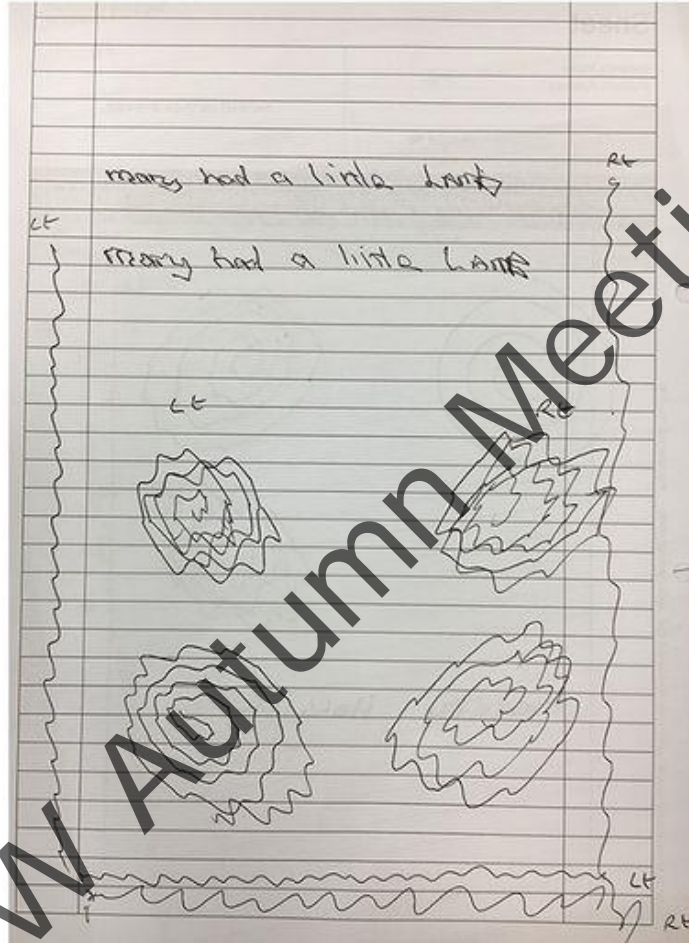 Rt
mary had a little LAMB
Lt
mary had a little LAMB
Lt Rt
Lt
Rt
W Autumn Meeti